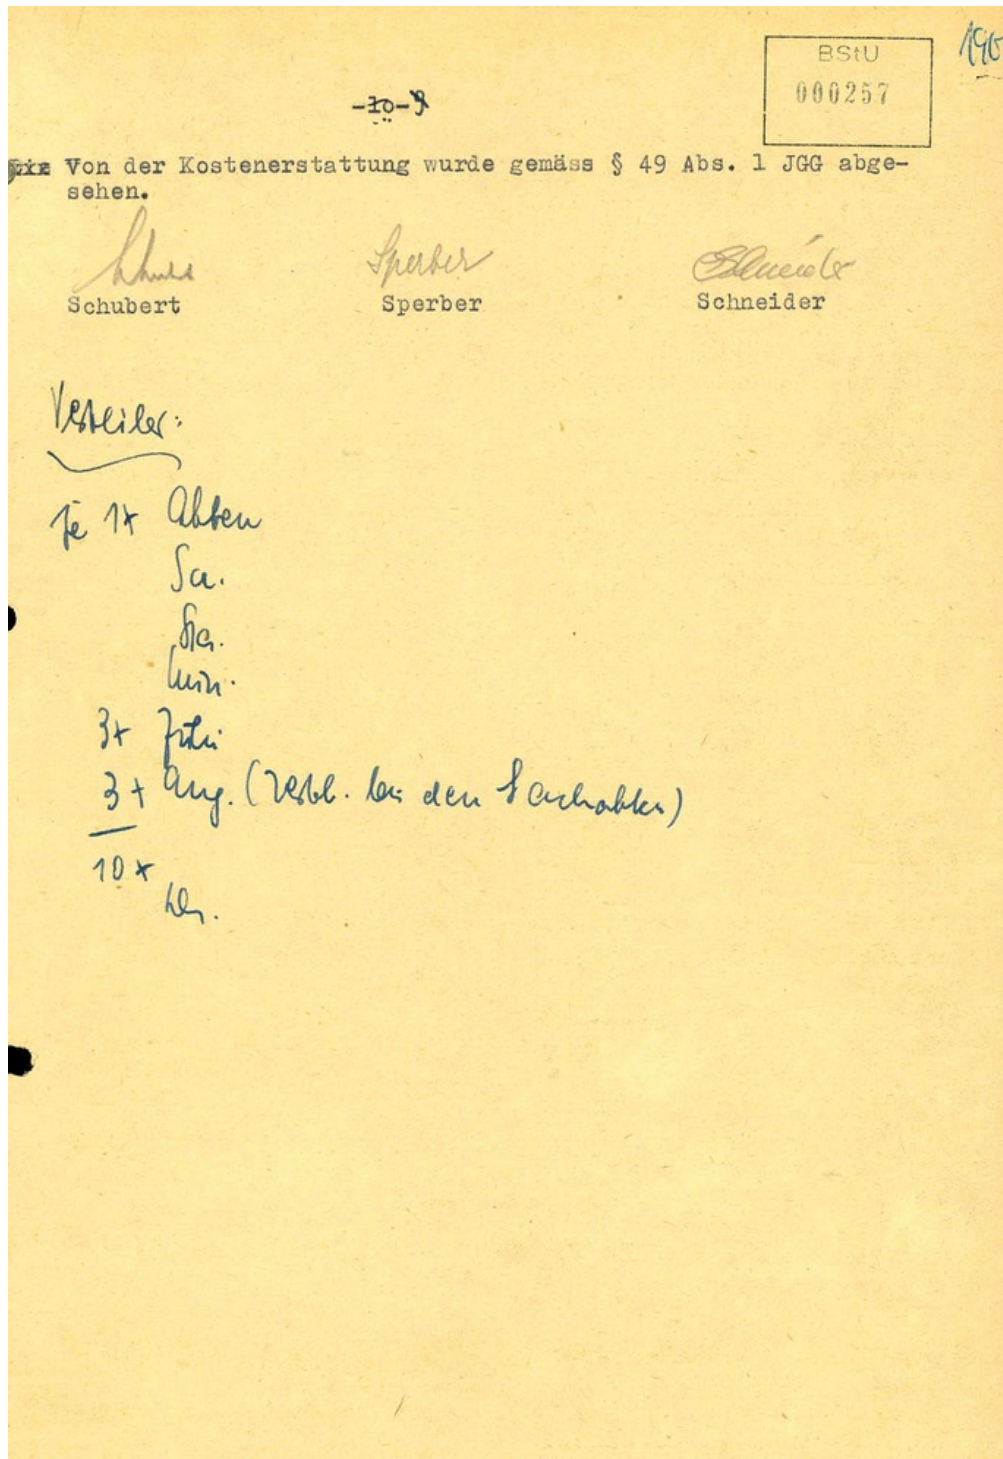 BStU
000257
-10- 9
Von der Kostenerstattung wurde gemäss § 49 Abs. 1 JGG abge-
sehen.
Sperber
Schneider
Schubert
Sperber
Schneider
Verteiler:
je 1x Akten
Sa.
Min.
3x
3x Ang. (verbl. bei den Sachakten)
10x